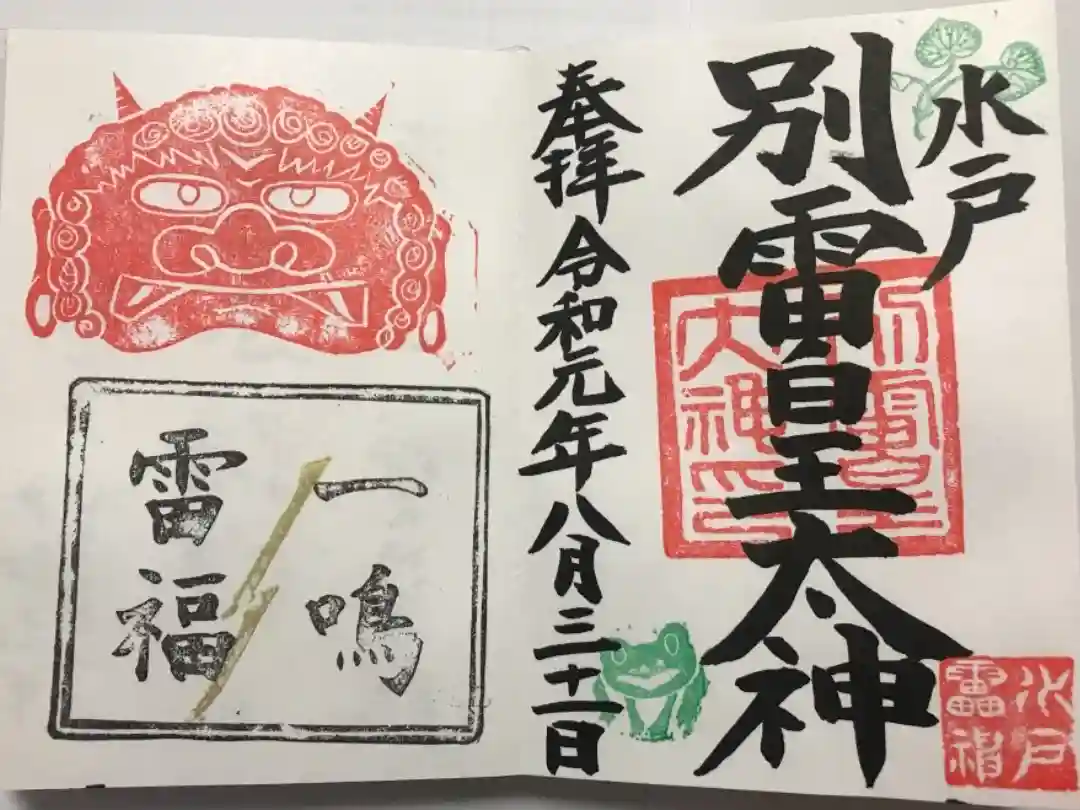 水戸
別雷皇太神
奉拝 令和元年八月三十一日
一鳴
雷福
別雷皇
大神印
水戸